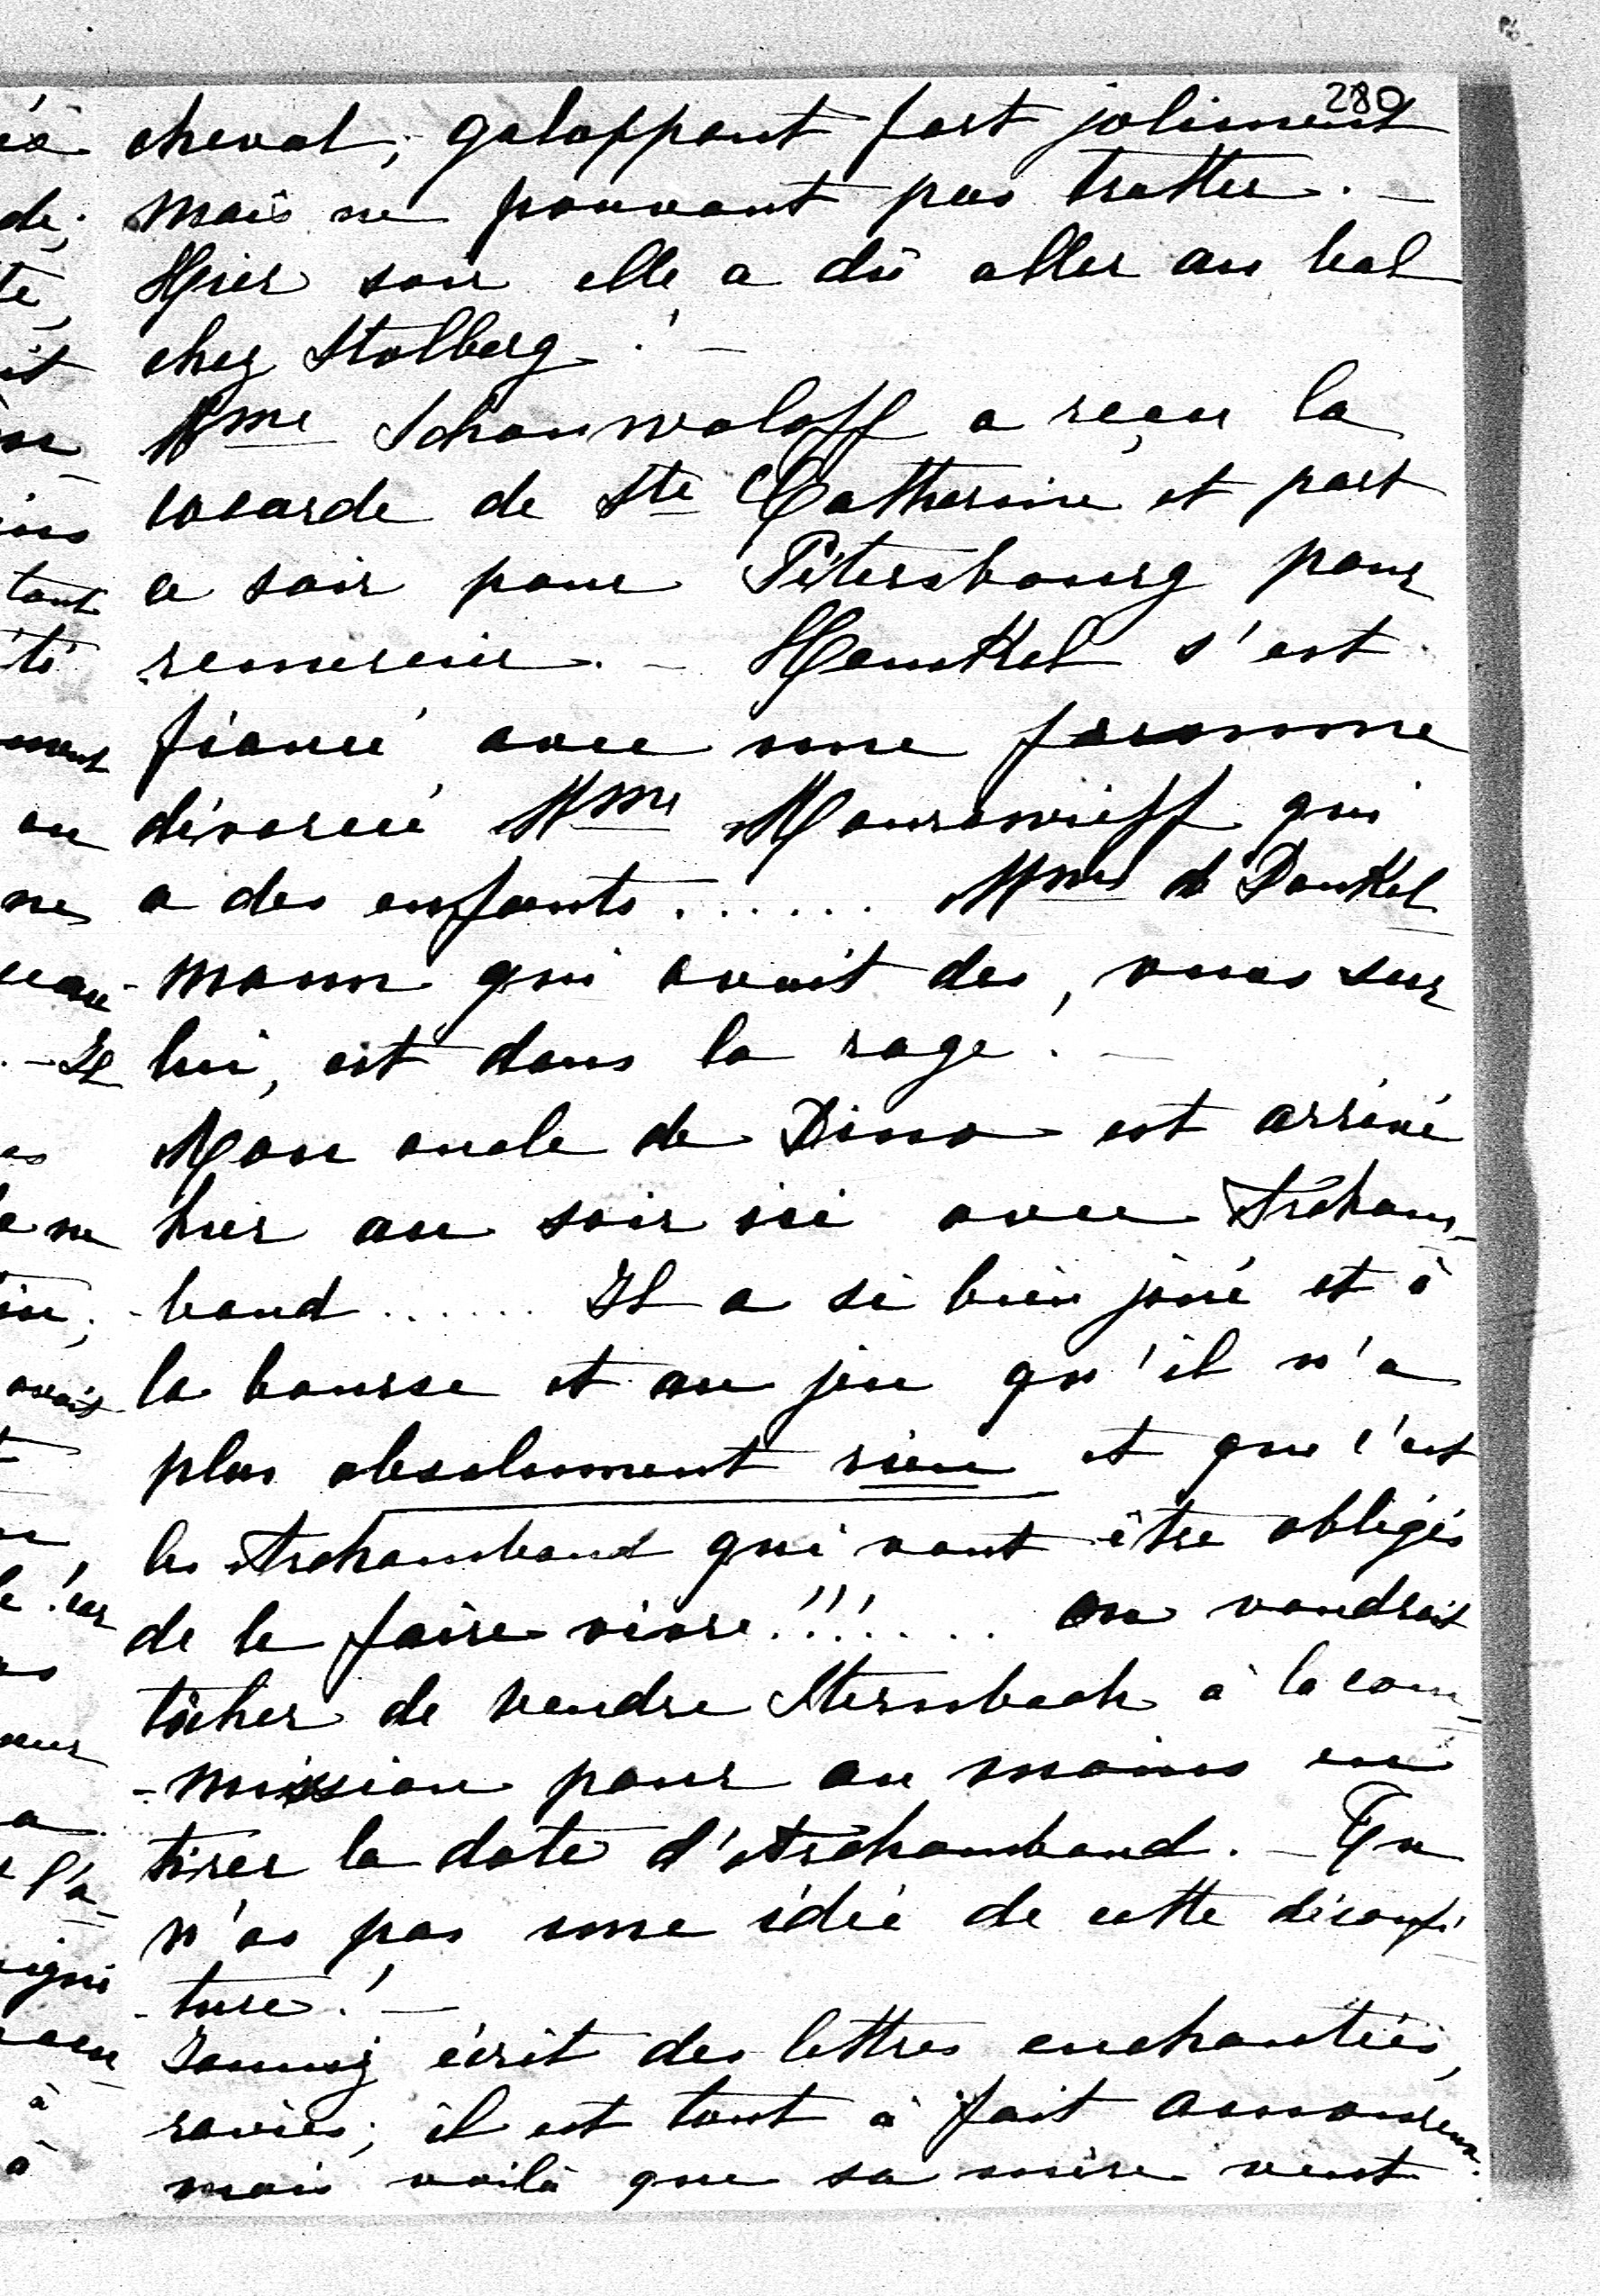 280
cheval, galoppant fort joliment
mais ne pouvant pas trotter. –
Hier soir elle a dû aller au bal
chez Stolberg! –
Mme Schouwaloff a reçu la
cocarde de Ste Catherine et part
ce soir pour Pétersbourg pour
remercier. – Henckel s'est
fiancé avec une femme
divorcée Mme Mourawieff qui
a des enfants...... Mme de Dankel
mann qui avait des, vues sur
lui, est dans la rage! –
Mon oncle de Dino est arrivé
hier au soir ici avec Archam-
-baud...... Il a si bien joué et à
la bourse et au jeu qu'il n'a
plus absolument rien et que c'est
les Archambaud qui vont être obligés
de le faire vivre!!!.... on voudrait
tâcher de vendre Sternbach à la com-
-mission pour au moins en
tirer la dote d'Archambaud. – Tu
n'as pas une idée de cette déconfi
-ture! –
écrit des lettres enchantées,
ravies; il est tout à fait amoureux.
mais voilà que sa mère vient